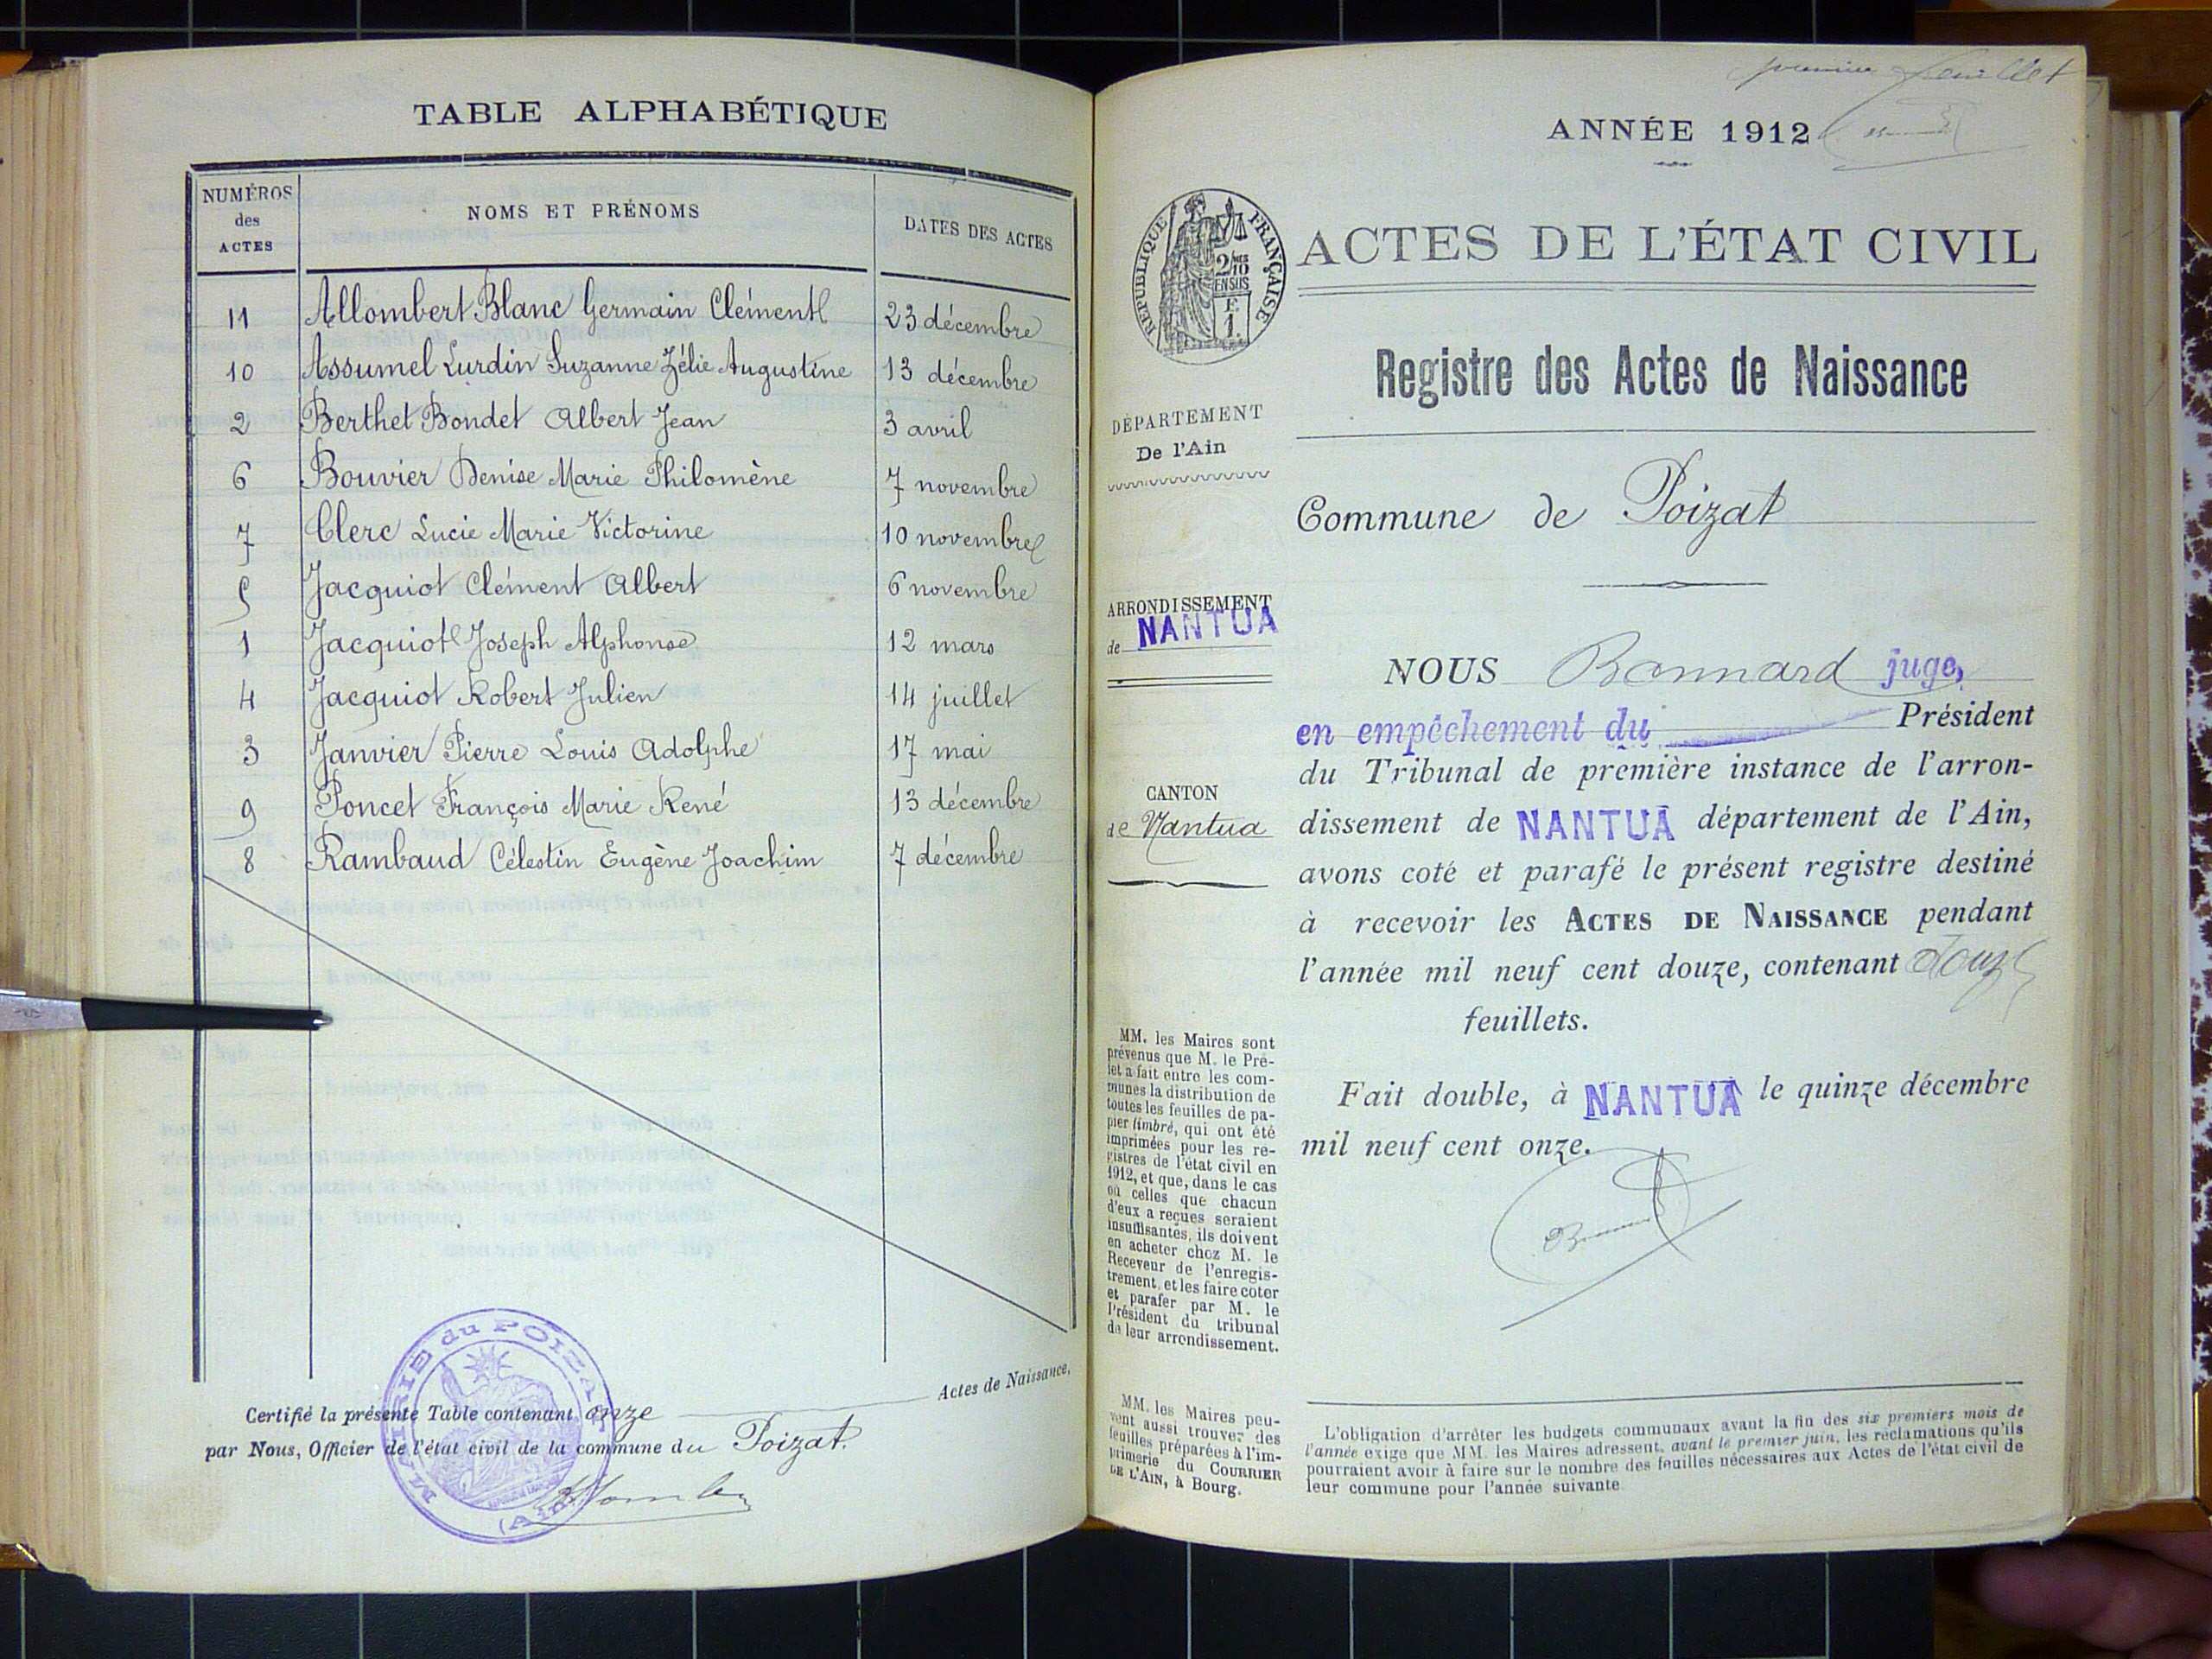 TABLE ALPHABÉTIQUE
NUMÉROS
des
ACTES
NOMS ET PRÉNOMS
DATES DES ACTES
11 Allombert Blanc Germain Clément 23 décembre
10 Assumel Lurdin Suzanne Zélie Augustine 13 décembre
2 Berthet Bondet Albert Jean 3 avril
6 Bouvier Denise Marie Philomène 7 novembre
7 Clerc Lucie Marie Victorine 10 novembre
5 Jacquiot Clément Albert 6 novembre
1 Jacquiot Joseph Alphonse 12 mars
4 Jacquiot Robert Julien 14 juillet
3 Janvier Pierre Louis Adolphe 17 mai
9 Poncet François Marie René 13 décembre
8 Rambaud Célestin Eugène Joachim 7 décembre
Certifié la présente Table contenant onze Actes de Naissance,
par Nous, Officier de l'état civil de la commune du Poizat.
MAIRIE du POIZAT
(Ain)
premier feuillet
ANNÉE 1912
RÉPUBLIQUE FRANÇAISE
2/10
EN SUS
F.
1.
ACTES DE L'ÉTAT CIVIL
Registre des Actes de Naissance
DÉPARTEMENT
De l'Ain
Commune de Poizat
ARRONDISSEMENT
de NANTUA
CANTON
de Nantua
NOUS Bonnard juge,
en empêchement du Président
du Tribunal de première instance de l'arron-
dissement de NANTUA département de l'Ain,
avons coté et parafé le présent registre destiné
à recevoir les ACTES DE NAISSANCE pendant
l'année mil neuf cent douze, contenant douze
feuillets.
Fait double, à NANTUA le quinze décembre
mil neuf cent onze.
MM. les Maires sont
prévenus que M. le Pré-
fet a fait entre les com-
munes la distribution de
toutes les feuilles de pa-
pier timbré, qui ont été
imprimées pour les re-
gistres de l'état civil en
1912, et que, dans le cas
où celles que chacun
d'eux a reçues seraient
insuffisantes, ils doivent
en acheter chez M. le
Receveur de l'enregis-
trement, et les faire coter
et parafer par M. le
Président du tribunal
de leur arrondissement.
MM. les Maires peu-
vent aussi trouver des
feuilles préparées à l'im-
primerie du COURRIER
DE L'AIN, à Bourg.
L'obligation d'arrêter les budgets communaux avant la fin des six premiers mois de
l'année exige que MM. les Maires adressent, avant le premier juin, les réclamations qu'ils
pourraient avoir à faire sur le nombre des feuilles nécessaires aux Actes de l'état civil de
leur commune pour l'année suivante.